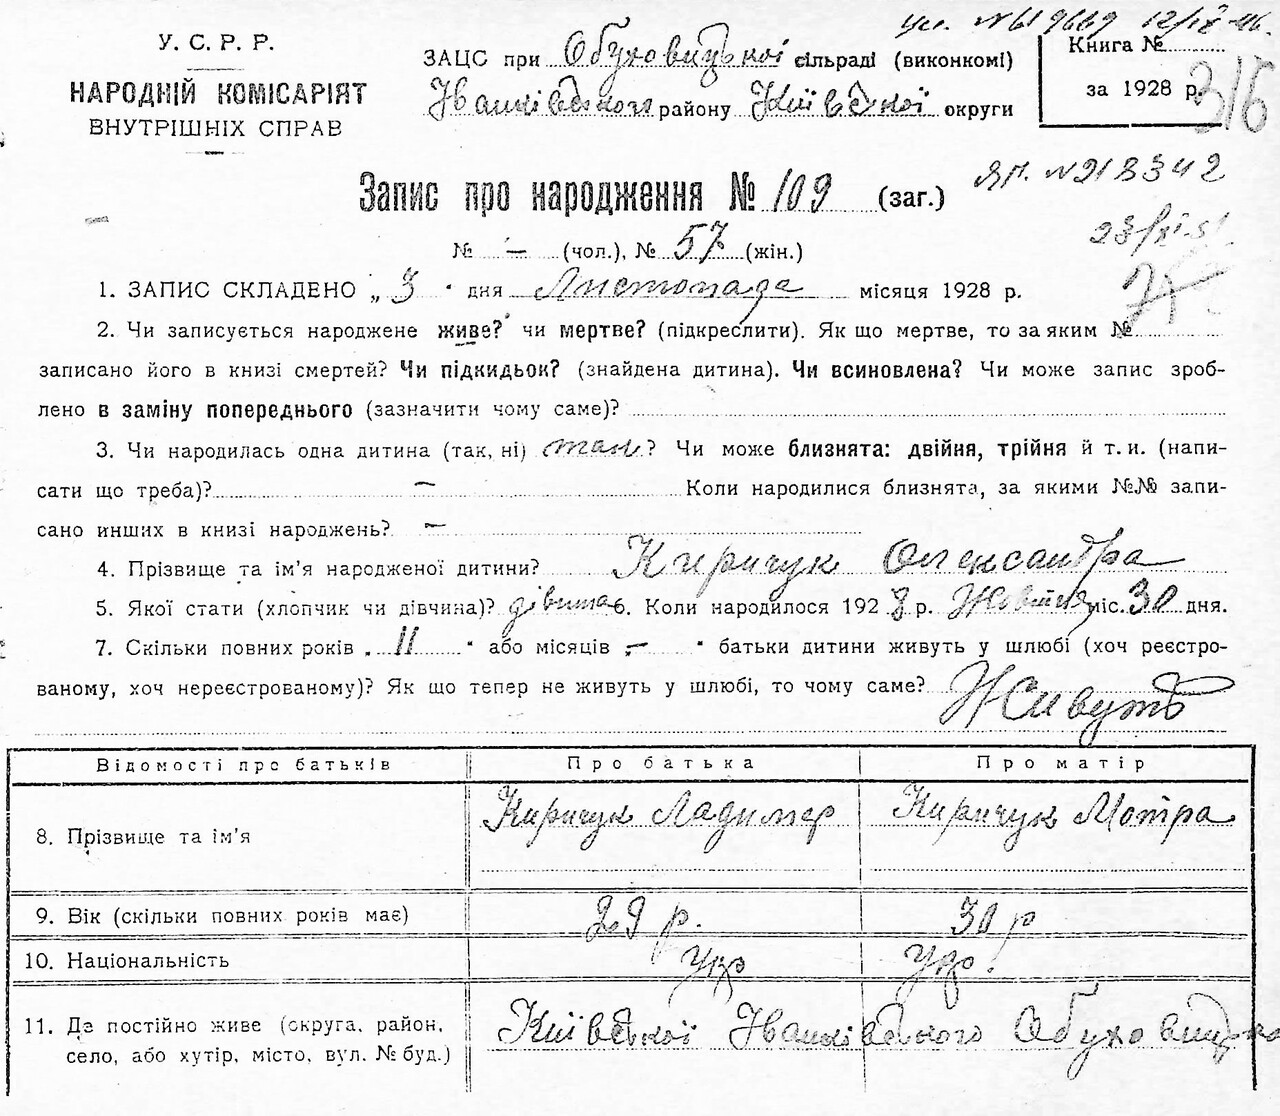 У. С. Р. Р.
НАРОДНІЙ КОМІСАРІЯТ
ВНУТРІШНІХ СПРАВ
№ 619669 12/IX-46.
ЗАЦС при Обуховицької сільраді (виконкомі)
Іванківського району Київської округи
Книга №
за 1928 р.
316
Запис про народження № 109 (заг.)
№ 218342
23/XI-51.
№ — (чол.), № 57 (жін.)
1. ЗАПИС СКЛАДЕНО „ 3 " дня Листопада місяця 1928 р.
2. Чи записується народжене живе? чи мертве? (підкреслити). Як що мертве, то за яким №
записано його в книзі смертей? Чи підкидьок? (знайдена дитина). Чи всиновлена? Чи може запис зроб-
лено в заміну попереднього (зазначити чому саме)?
3. Чи народилась одна дитина (так, ні) так? Чи може близнята: двійня, трійня й т. и. (напи-
сати що треба)? — Коли народилися близнята, за якими №№ запи-
сано инших в книзі народжень? —
4. Прізвище та ім'я народженої дитини? Киричук Олександра
5. Якої стати (хлопчик чи дівчина)? дівчина 6. Коли народилося 1928 р. Жовтня міс. 30 дня.
7. Скільки повних років „ 11 " або місяців „ — " батьки дитини живуть у шлюбі (хоч реєстро-
ваному, хоч нереєстрованому)? Як що тепер не живуть у шлюбі, то чому саме? Живуть
Відомості про батьків Про батька Про матір
8. Прізвище та ім'я Киричук Ладимер Киричук Мотра
9. Вік (скільки повних років має) 29 р. 30 р
10. Національність Укр Укр.
11. Де постійно живе (округа, район, Київської Іванківського
село, або хутір, місто, вул. № буд.)